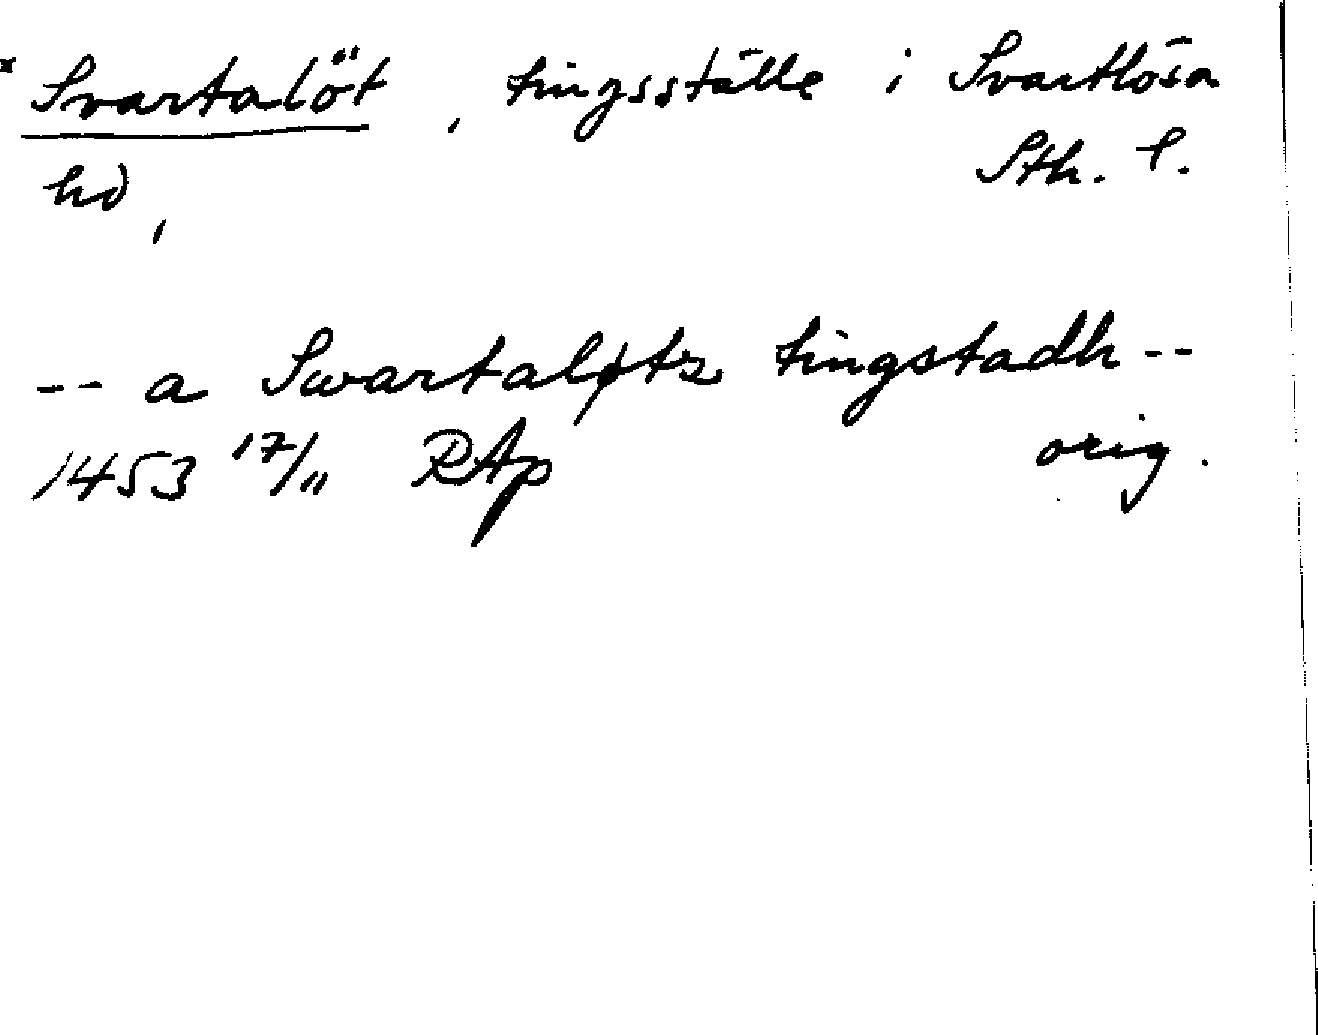 × Svartalöt, tingsställe i Svartlösa
hd, Sth. l.
-- a Swartaløtz tingstadh --
1453 17/11 RAp orig.